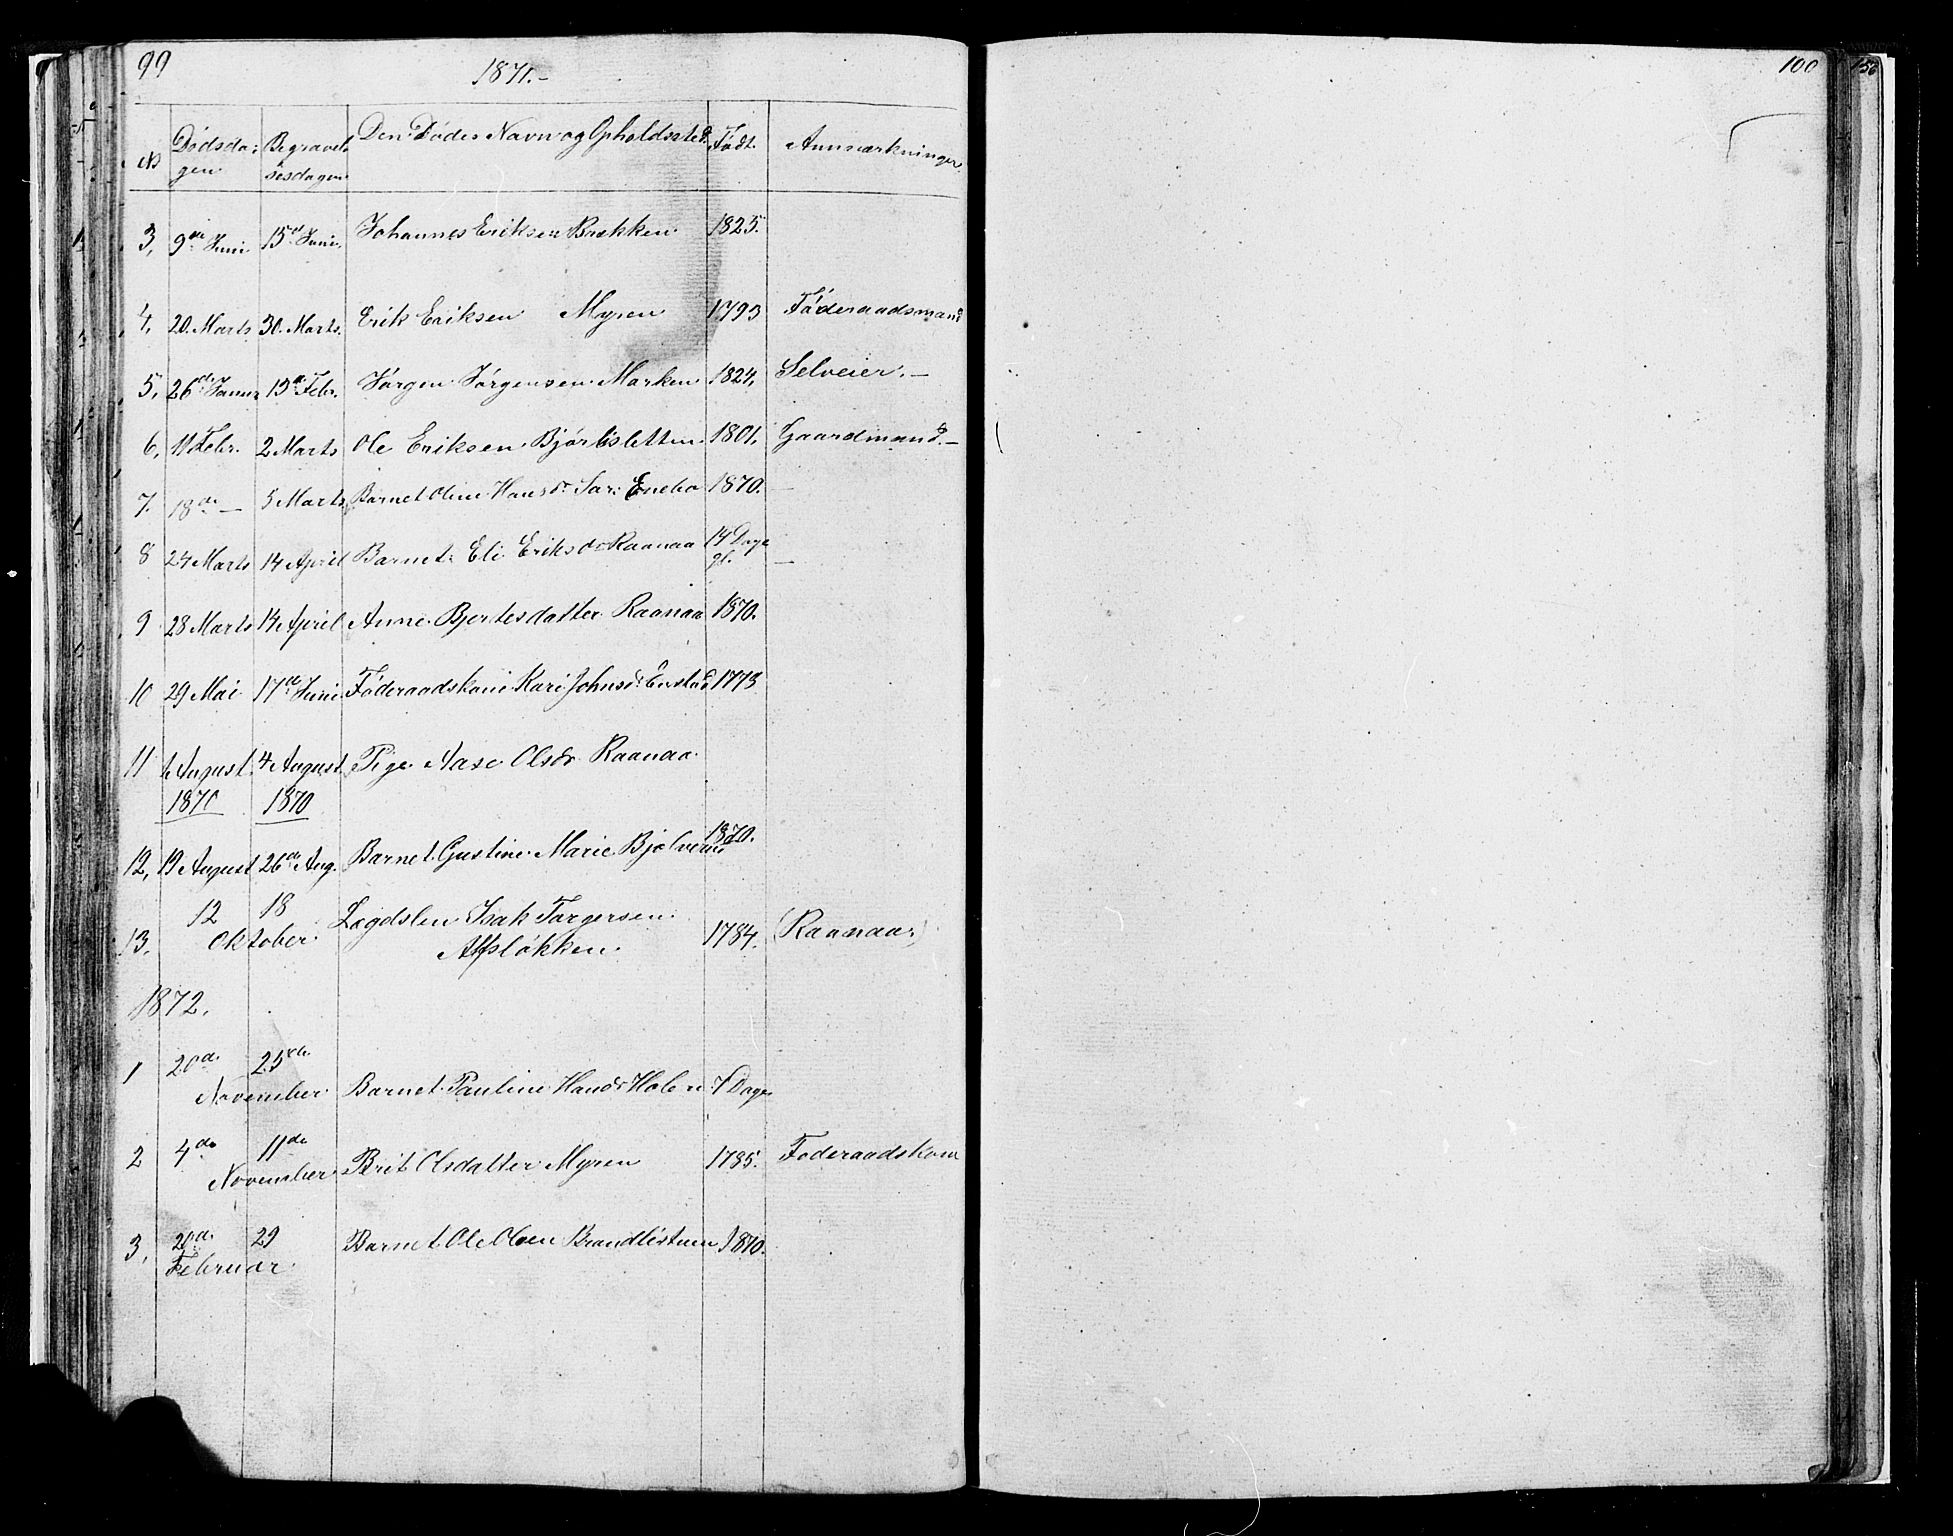 99
1871.-
No Dødsda- Begravel- Den Dødes Navn og Opholdssted. Født. Anmærkninger
gen sesdagen
3, 9de Juni 15de Juni. Johannes Eriksen Brækken 1825.
4, 20. Marts 30. Marts. Erik Eriksen Myren 1793 Føderaadsmand
5, 26de Januar 13de Febr. Jørgen Jørgensen Marken 1824, Selveier. -
6, 11 Febr. 2 Marts Ole Eriksen Bjørlisletten 1801, Gaardmand. -
7. 18de - 5 Marts Barnet Oline Hansdr Enebo 1870. -
8 24 Marts 14 April Barnet Eli Eriksdr Raanaa 14 Dage
gl. -
9 28 Marts 14 April Anne Bjertesdatter Raanaa 1870.
10 29 Mai 17de Juni Føderaadskone Kari Johnsdr Enstad 1773
11 1 August 4 August Pige Aase Olsdr Raanaa
1870 1870
12, 19 August 26de Aug. Barnet Gustine Marie Bjølverud 1870.
12 18 Lægdslem Isak Torgersen
13, Oktober. Alfsløkken 1784. (Raanaa.)
1872.
1 20de 25de
November Barnet Pauline Hansdr Holen 7 Dage
2 4de 11de
November Brit Olsdatter Myren 1785. Føderaadskone
3, 20de 29 Barnet Ole Olsen Brandlistuen 1870.
Februar
100
156